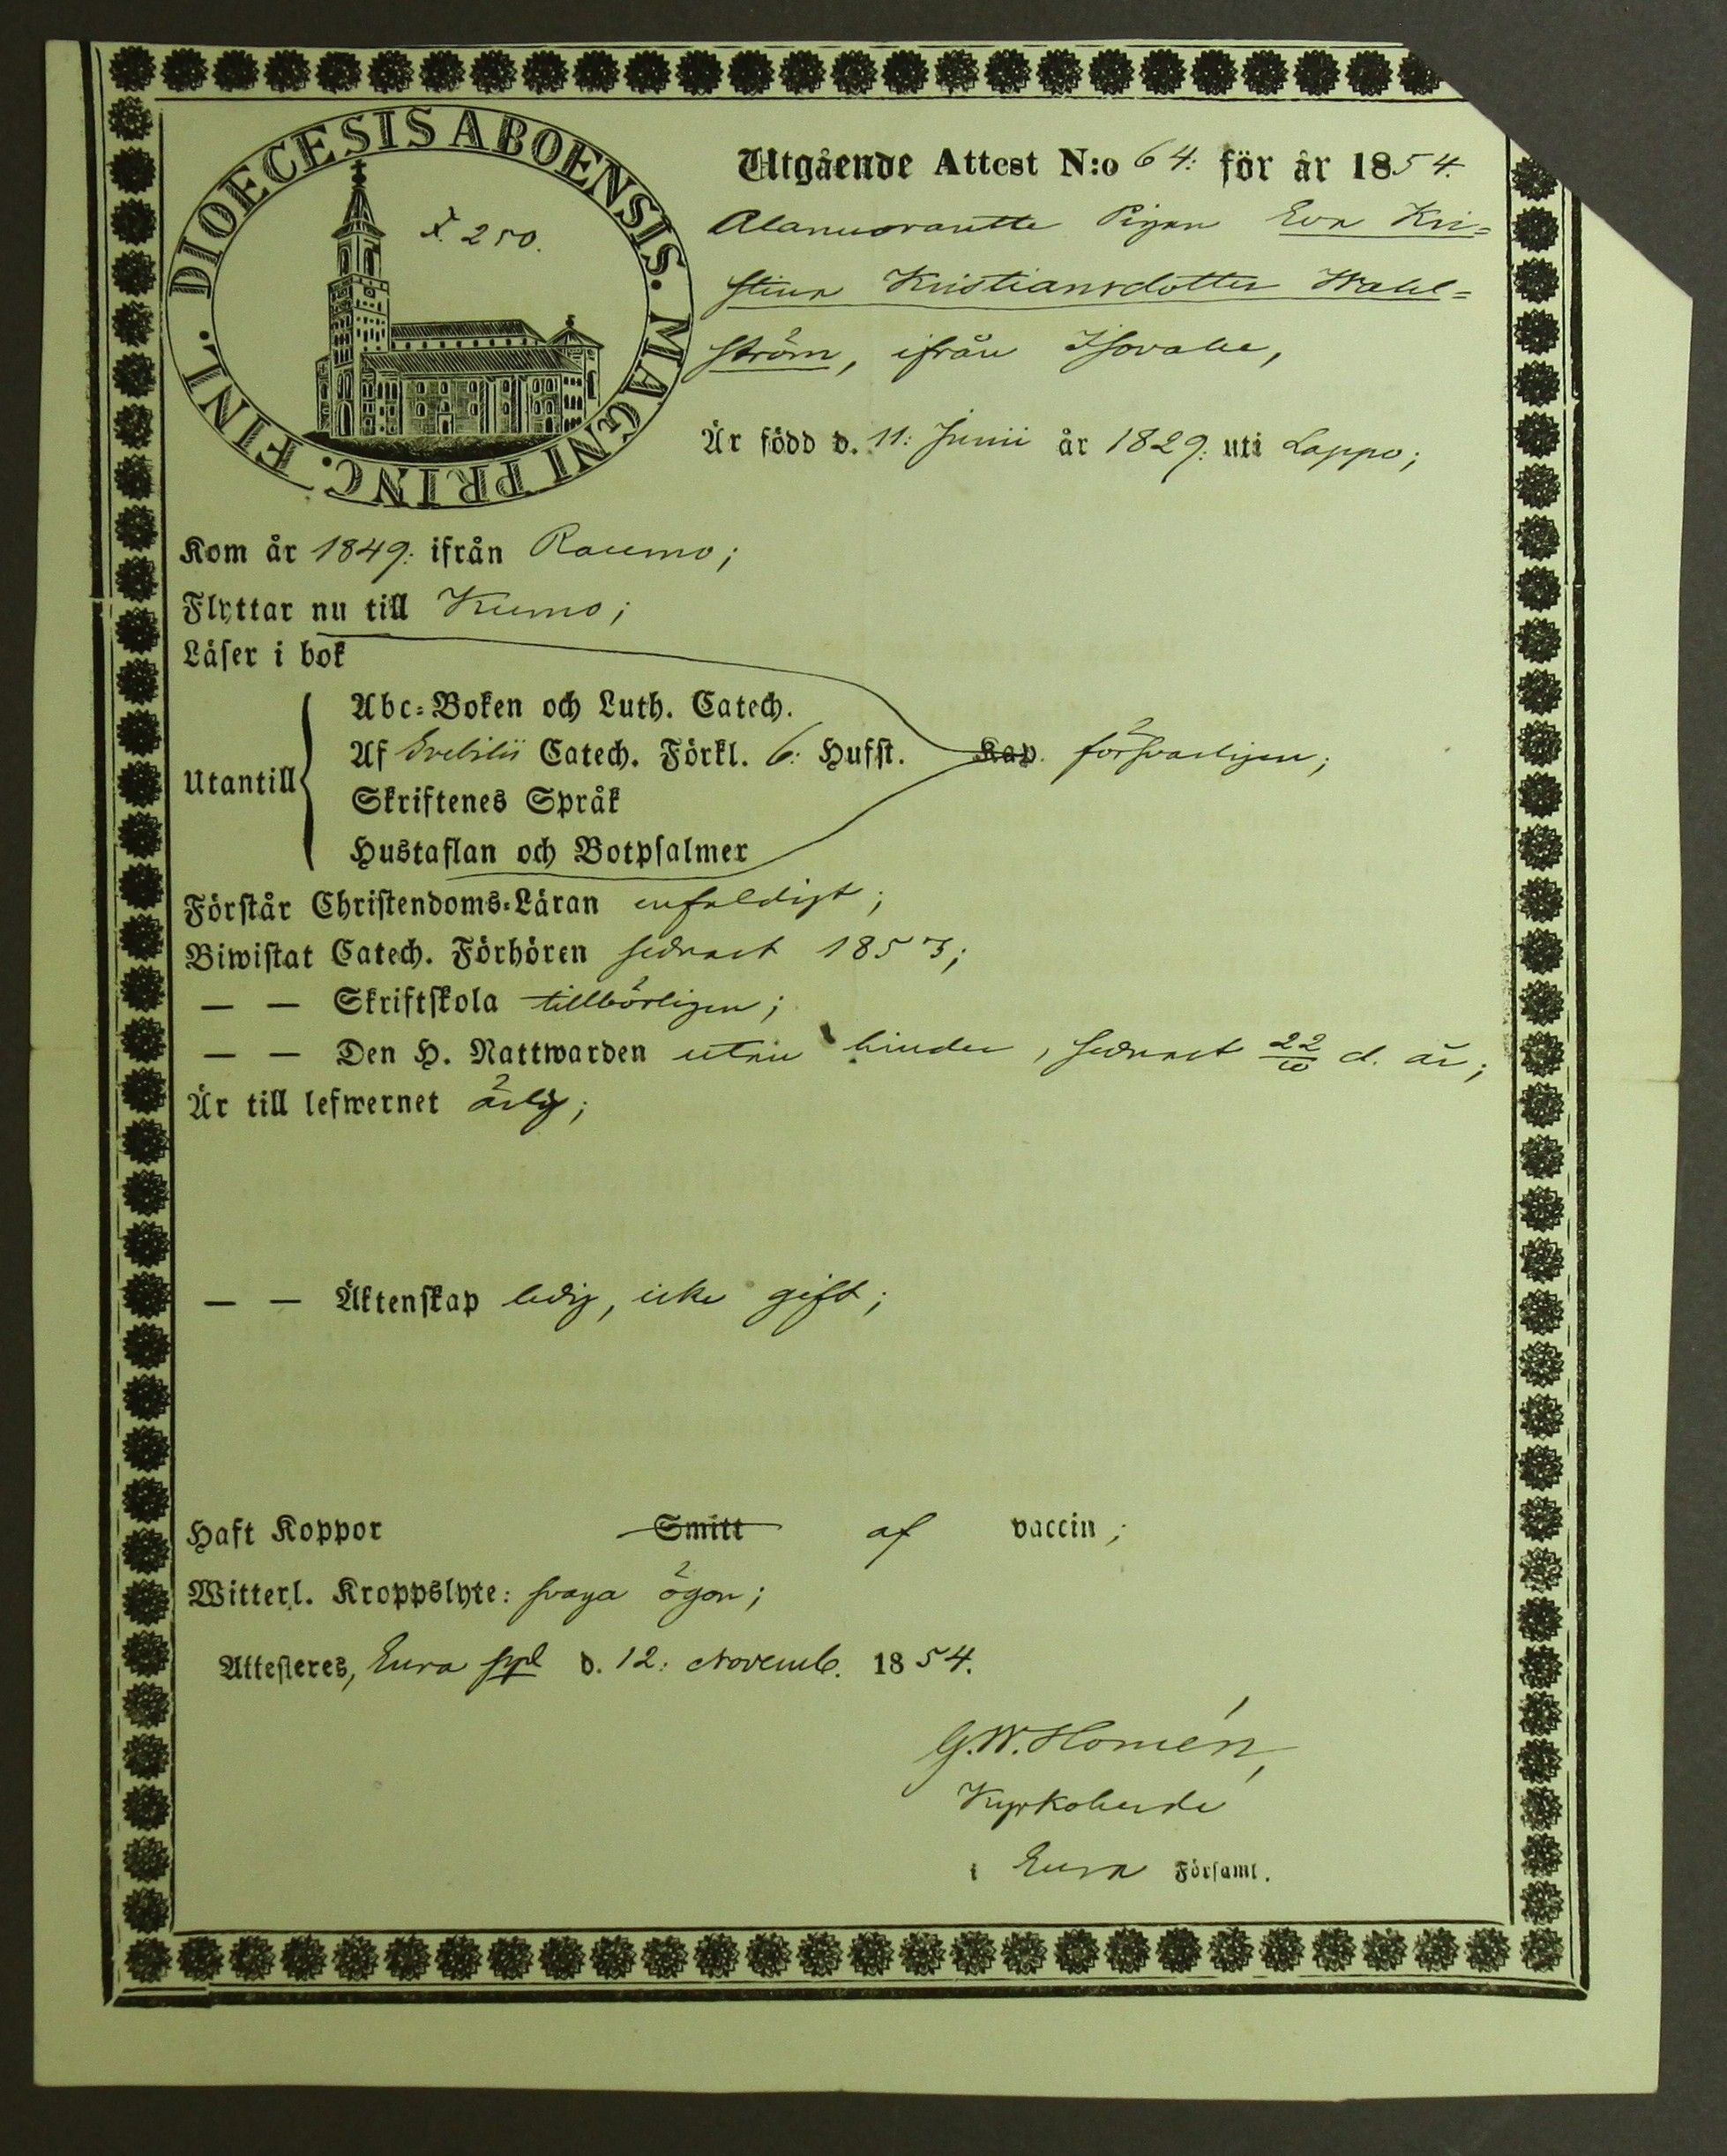 DIOECESIS ABOENSIS. MAGNI PRINC. FINL.
250.
Utgående Attest N:o 64: för år 1854.
Pigan Eva Kri=
stina Kristiansdotter Wahl=
ström, ifrån Isovahe,
Är född d. 11: Junii år 1829: uti Lappo;
Kom år 1849: ifrån Raumo;
Flyttar nu till Kumo;
Läser i bok
Utantill
Abc=Boken och Luth. Catech.
Af Svebilii Catech. Förkl. 6: Hufst. Kap. försvarligen;
Skriftenes Språk
Hustaflan och Botpsalmer
Förstår Christendoms=Läran enfaldigt;
Biwistat Catech. Förhören sednast 1853;
— — Skriftskola tillbörligen;
— — Den H. Nattwarden utan hinder, sednast 22/10 d. år;
Är till lefwernet ärlig;
— — Äktenskap ledig, icke gift;
Haft Koppor Smitt af vaccin;
Witterl. Kroppslyte: svaga ögon;
Attesteres, Eura d. 12: Novemb. 1854.
G.W. Homén,
Kyrkoherde
i Eura Församl.